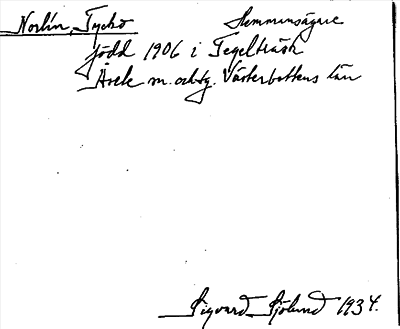 Norlin, Tycho Hemmansägare
född 1906 i Tegelträsk
Åsele m. och sg. Västerbottens län
Sigvard Sjölund 1934.